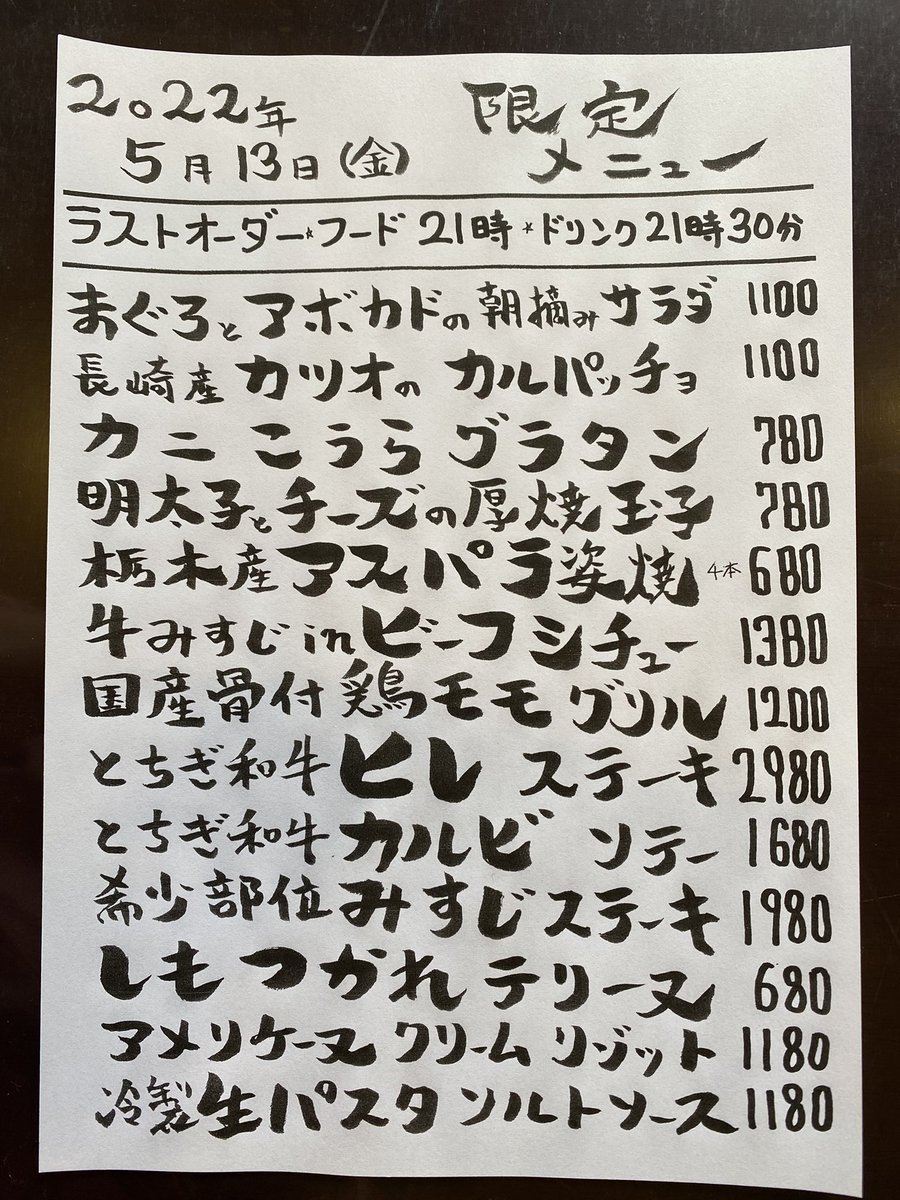 2022年 限定
5月13日(金) メニュー
ラストオーダー*フード 21時 *ドリンク21時30分
まぐろとアボカドの朝摘みサラダ 1100
長崎産 カツオの カルパッチョ 1100
カニ こうら グラタン 780
明太子とチーズの厚焼玉子 780
栃木産アスパラ姿焼 4本 680
牛みすじinビーフシチュー 1380
国産骨付 鶏モモ グリル 1200
とちぎ和牛ヒレ ステーキ 2980
とちぎ和牛カルビ ソテー 1680
希少部位 みすじステーキ 1980
しもつかれ テリーヌ 680
アメリケーヌ クリーム リゾット 1180
冷製生パスタ ソルトソース 1180